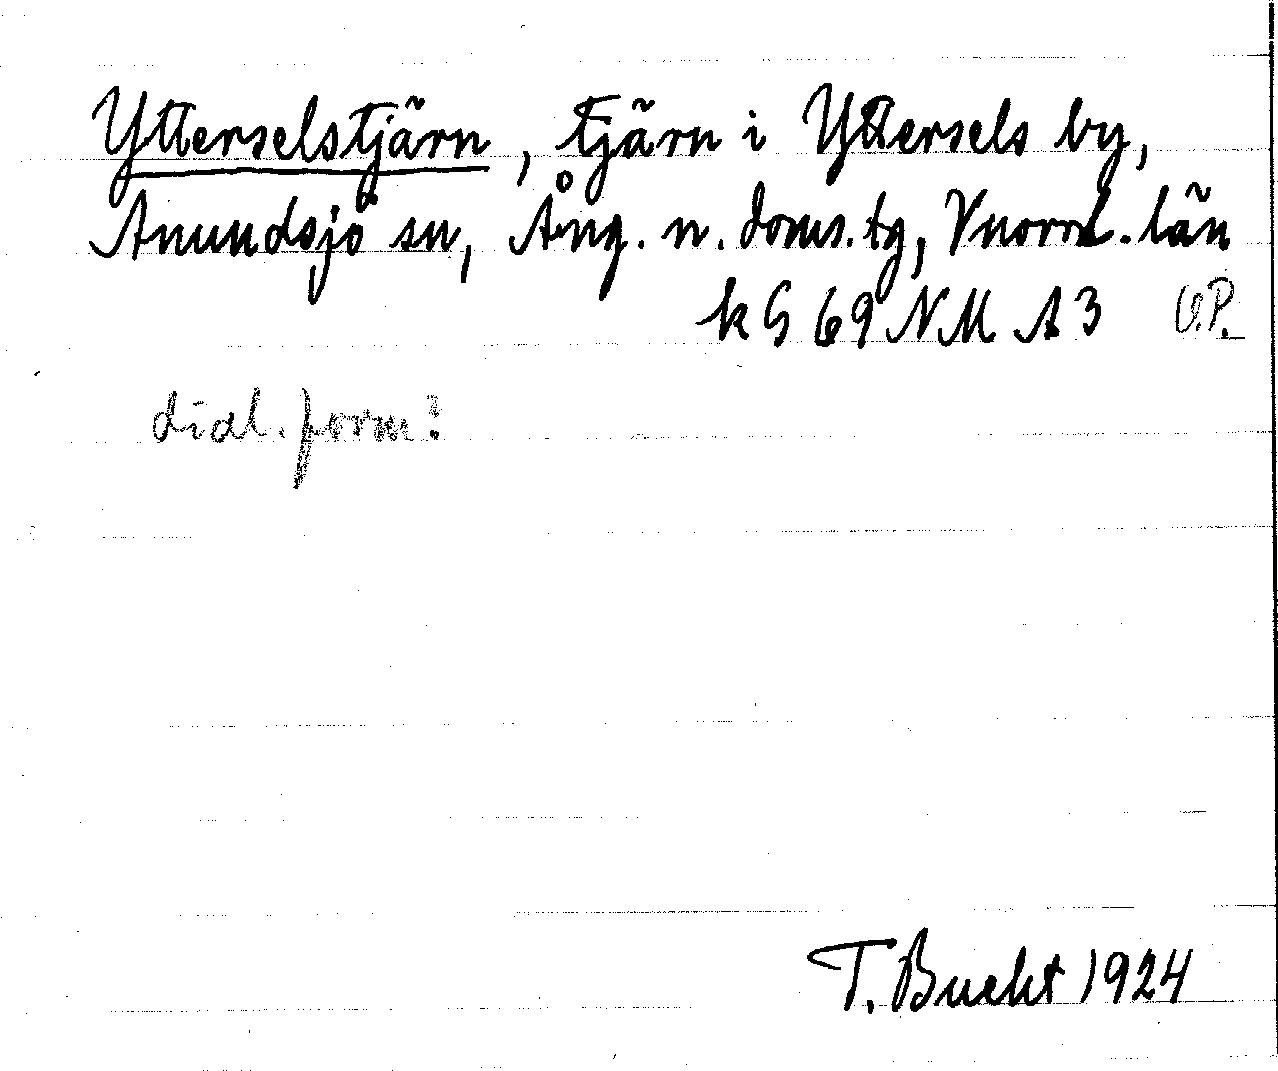 Ytterselstjärn, tjärn i Yttersels by,
Anundsjö sn, Ång. n. doms. tg, Vnorrl. län
k G 69 NM A3 O.P.
dial. form?
T. Bucht 1924